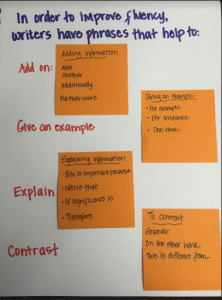 In order to improve fluency,
writers have phrases that help to:
Add on:
Adding Information
Also
Another
Additionally
Furthermore
Give an example
Giving an Example:
• For example
• For instance
• One time
Explain
Explaining Information
• This is important because
• Notice that
• Of significance is
• Therefore
Contrast
To Contrast
However
On the other hand
This is different from